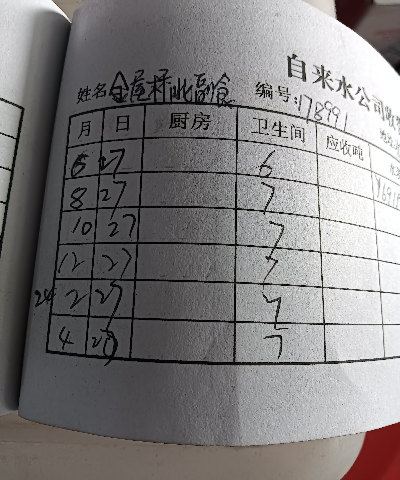 自来水公司
姓名 金屋桥北副食 编号: 178991
月 日 厨房 卫生间 应收吨
6 27 6
8 27 7
10 27 7
12 27 7
24 2 27 7
4 28 7